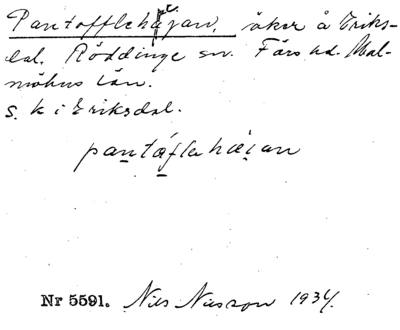 Pantofflehajan, åker å Eriks-
dal. Röddinge sn. Färs hd. Mal-
möhus län.
s. k i Eriksdal.
pantáflahæjan
Nr 5591. Nils Nilsson 1934.